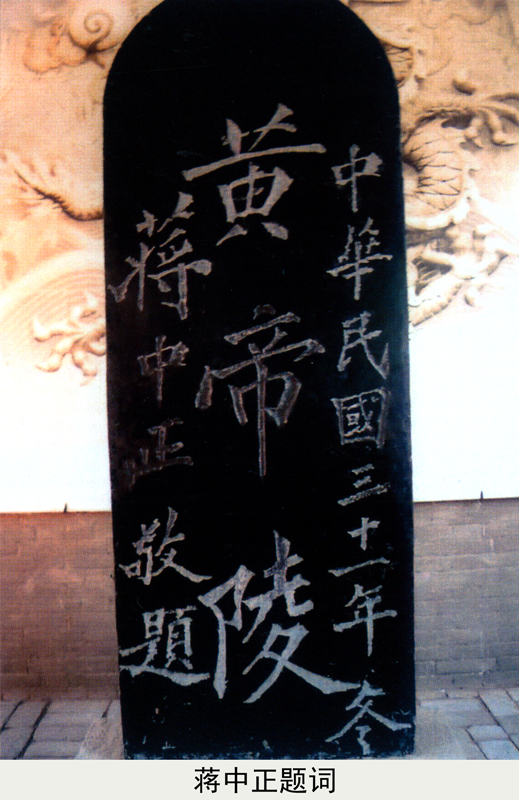 中華民國三十一年冬
黄帝陵
蔣中正敬題
蒋中正题词